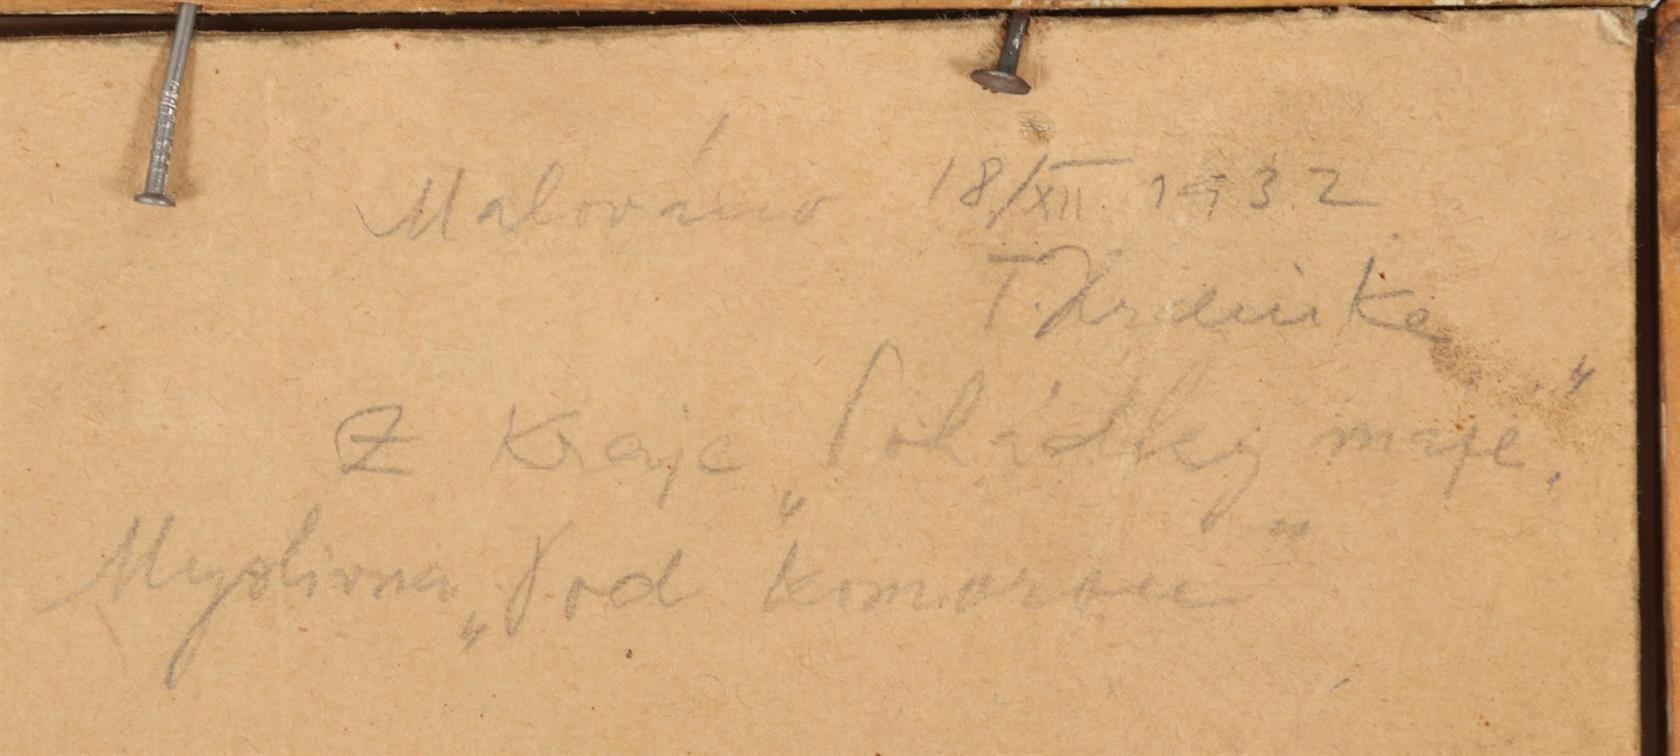 Malováno 18/XII. 1932
T. Hrdinka
Z Kraje „Pohádky máje."
Myslivna „Pod Komorou"